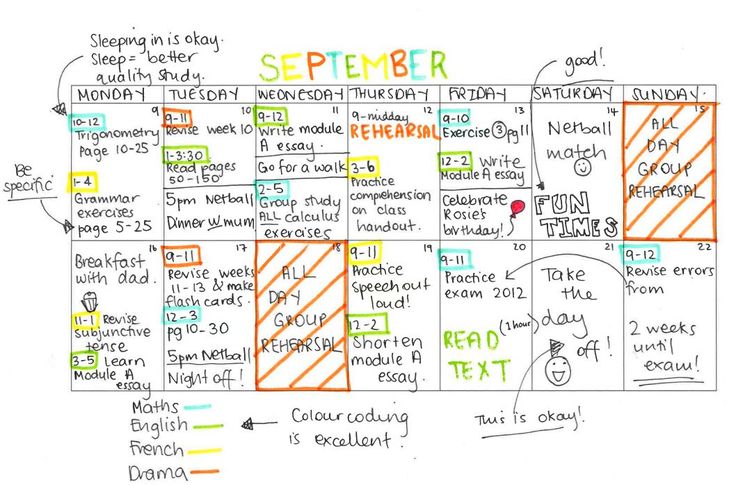 Sleeping in is okay.
Sleep = better
quality study.
SEPTEMBER
good!
MONDAY TUESDAY WEDNESDAY THURSDAY FRIDAY SATURDAY SUNDAY
9
10-12
Trigonometry
page 10-25
1-4
Grammar
exercises
page 5-25
Be
specific
10
9-11
Revise week 10
1-3:30
Read pages
50-150
5pm Netball
Dinner w mum
11
9-12
Write module
A essay.
Go for a walk
2-5
Group study
ALL calculus
exercises
12
9-midday
REHEARSAL
3-6
Practice
comprehension
on class
handout.
13
9-10
Exercise 3 pg 11
12-2 Write
Module A essay
Celebrate
Rosie's
birthday!
14
Netball
match
FUN
TIMES
15
ALL
DAY
GROUP
REHEARSAL
16
Breakfast
with dad.
11-1 Revise
subjunctive
tense
3-5 Learn
Module A
essay
17
9-11
Revise weeks
11-13 & make
flash cards.
12-3
pg 10-30
5pm Netball
Night off!
18
ALL
DAY
GROUP
REHEARSAL
19
9-11
Practice
speech out
loud!
12-2
Shorten
module A
essay.
20
9-11
Practice
exam 2012
READ (1 hour)
TEXT
21
Take
the
day
off!
22
9-12
Revise errors
from
2 weeks
until
exam!
This is okay!
Maths
English
French
Drama
Colour coding
is excellent!